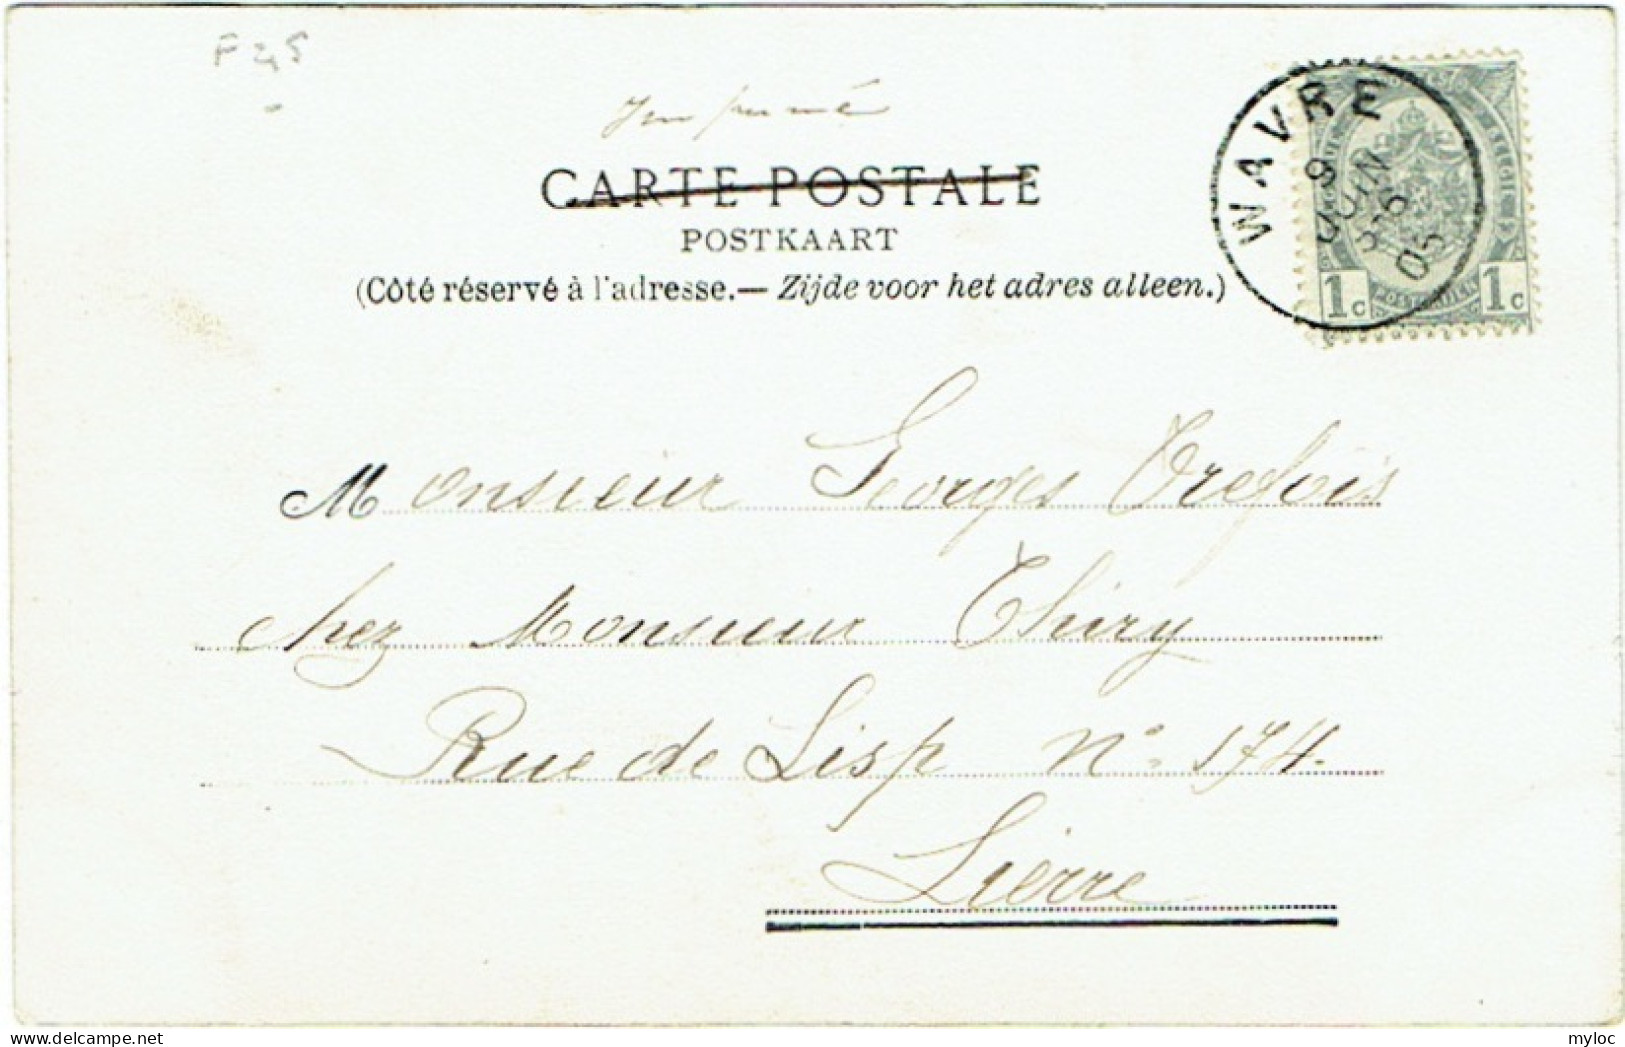 F 25
Imprimé
CARTE POSTALE
POSTKAART
(Côté réservé à l'adresse.— Zijde voor het adres alleen.)
WAVRE
9
JUIN
05
1c 1c
Monsieur Georges Orefois
chez Monsieur Thiry
Rue de Lisp N° 174.
Lierre
myloc